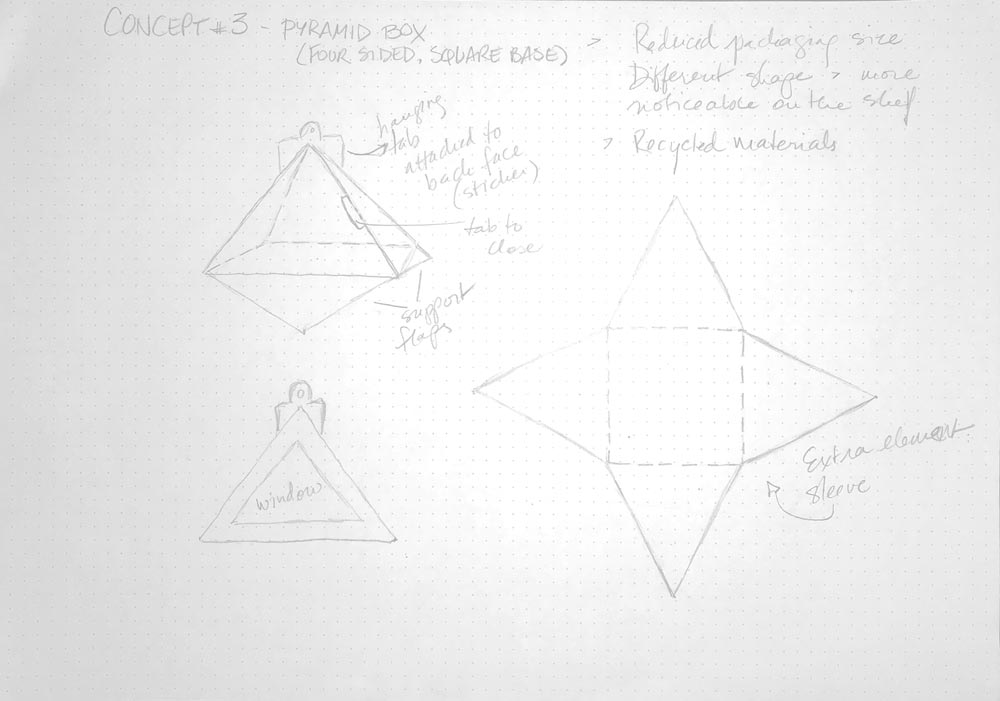 CONCEPT #3 - PYRAMID BOX
(FOUR SIDED, SQUARE BASE)
> Reduced packaging size
Different shape > more
noticeable on the shelf
> Recycled materials
hanging
tab
attached to
back face
(sticker)
tab to
close
support
flaps
window
Extra element
sleeve